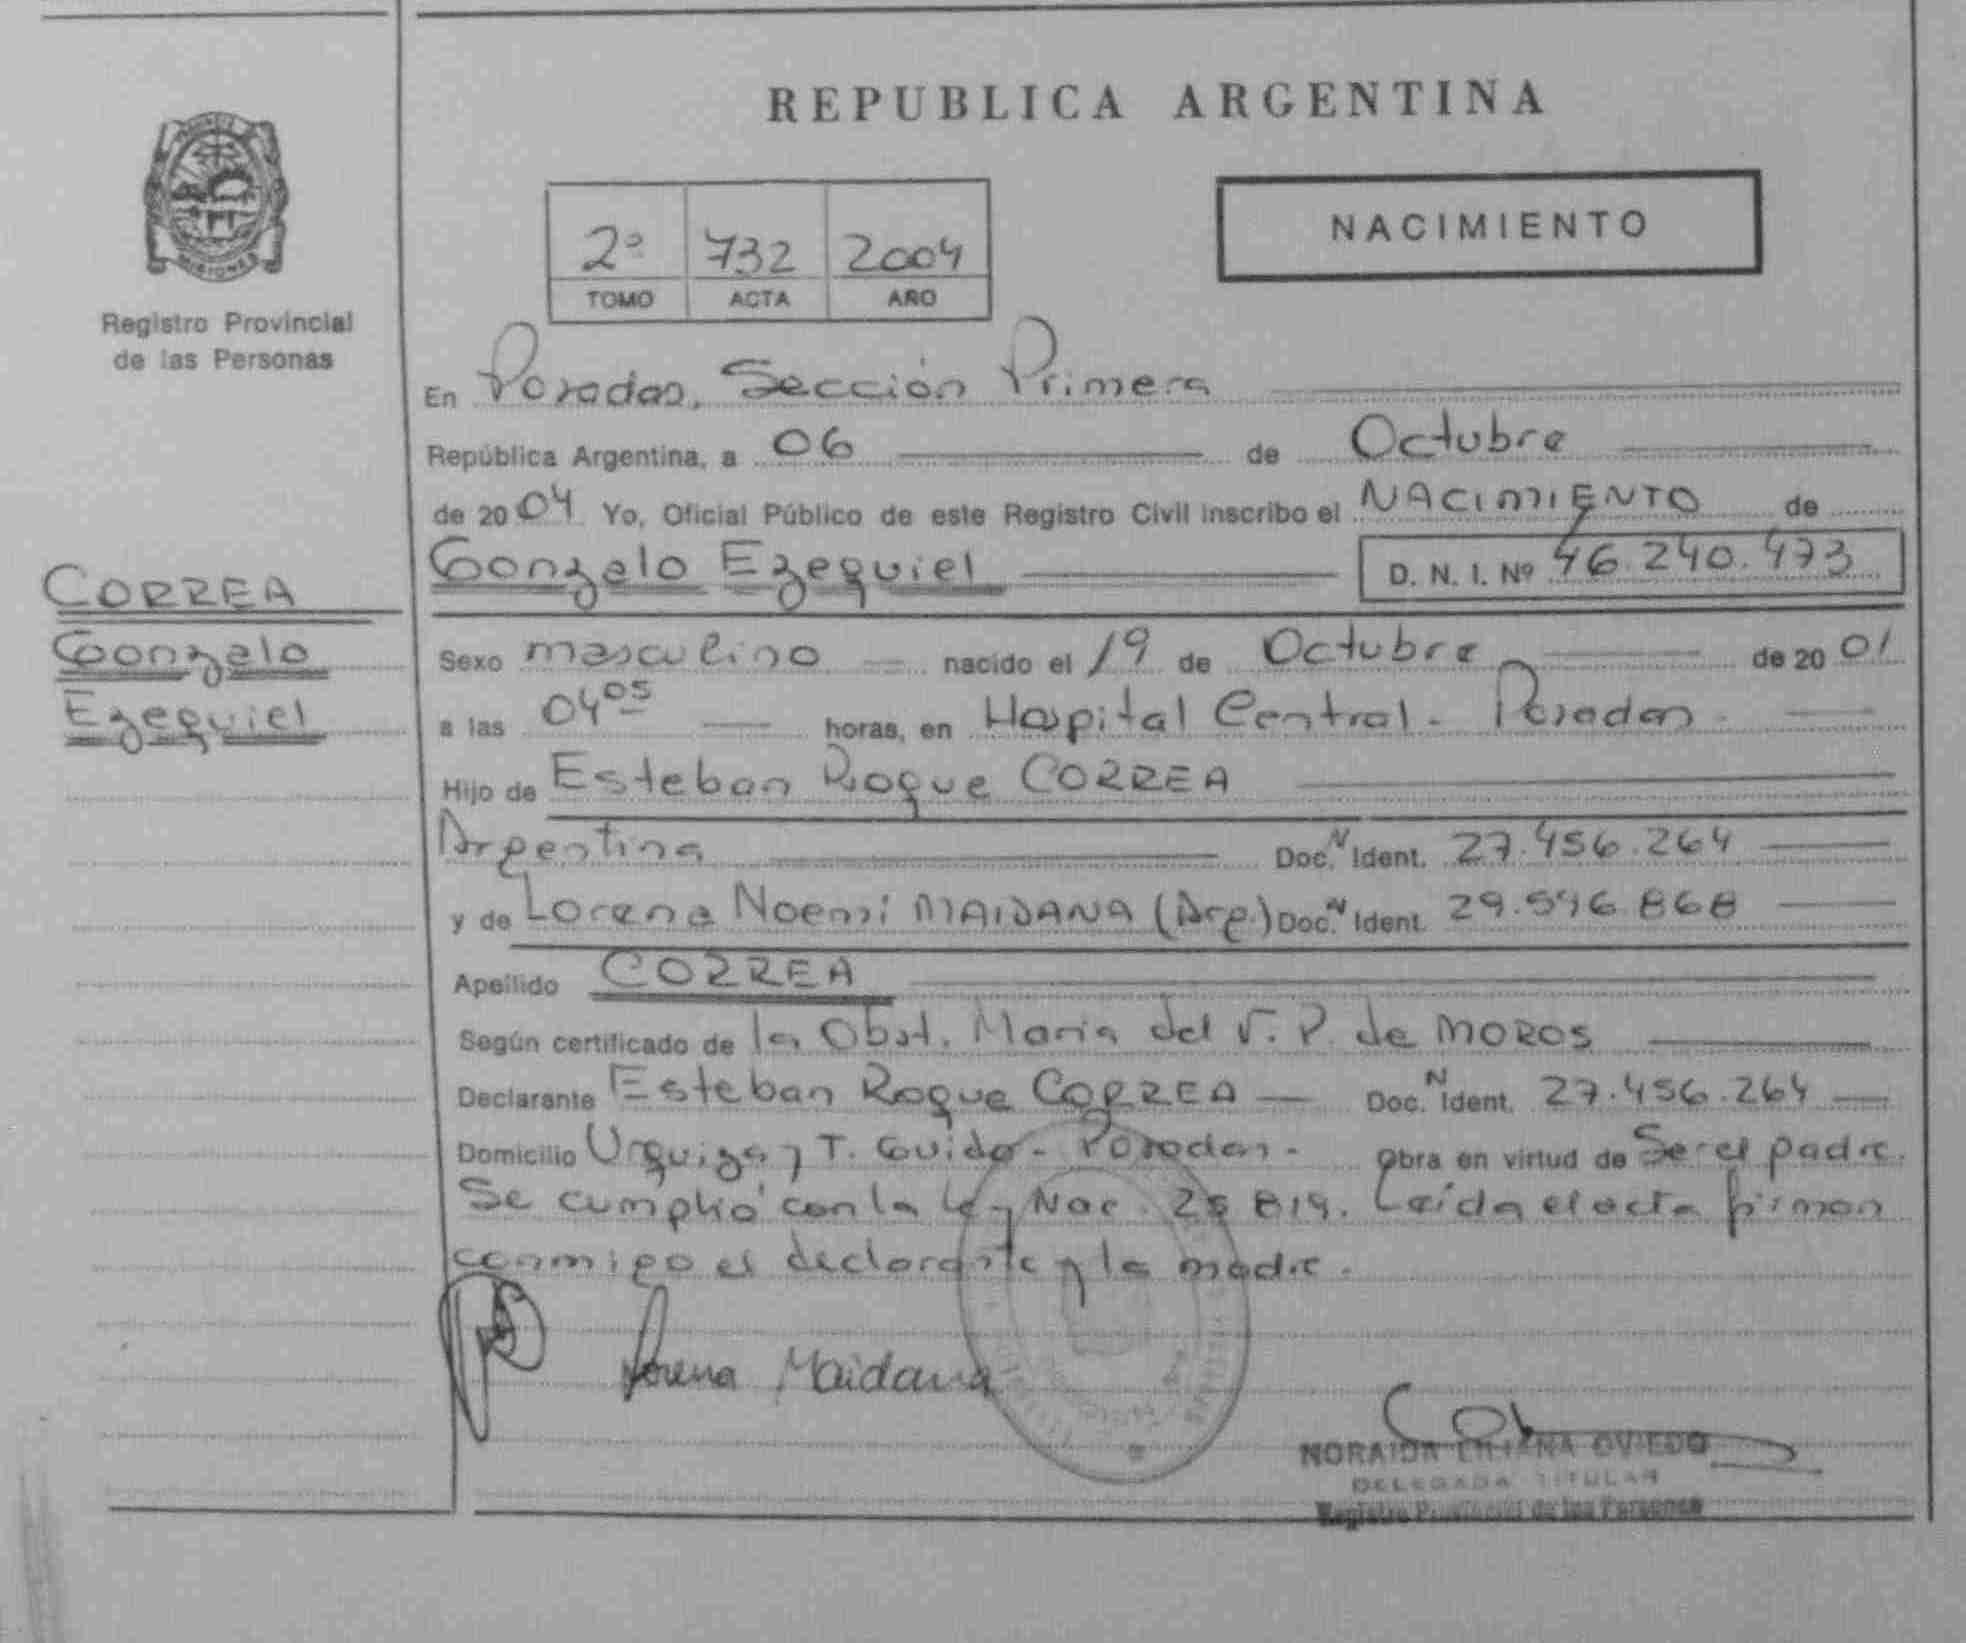 REPUBLICA ARGENTINA
MISIONES
Registro Provincial
de las Personas
2º 732 2004
TOMO ACTA AÑO
NACIMIENTO
En Posadas, Sección Primera
República Argentina, a 06 de Octubre
de 2004 Yo, Oficial Público de este Registro Civil inscribo el NACIMIENTO de
Gonzalo Ezequiel D. N. I. Nº 46.240.473
CORREA
Gonzalo
Ezequiel
Sexo masculino nacido el 19 de Octubre de 2001
a las 04 05 horas, en Hospital Central - Posadas -
Hijo de Esteban Roque CORREA
Argentina Doc. N Ident. 27.456.264
y de Lorena Noemí MAIDANA (Arg.) Doc. N Ident. 29.596.868
Apellido CORREA
Según certificado de la Obst. Maria del V. P. de MOROS
Declarante Esteban Roque CORREA Doc. N Ident. 27.456.264
Domicilio Urquiza y T. Guido - Posadas - Obra en virtud de Ser el padre.
Se cumplió con la Ley Nac. 25 819. Leída el acta firman
conmigo el declarante y la madre.
Lorena Maidana
NORAIDA LILIANA OVIEDO
DELEGADA TITULAR
Registro Provincial de las Personas